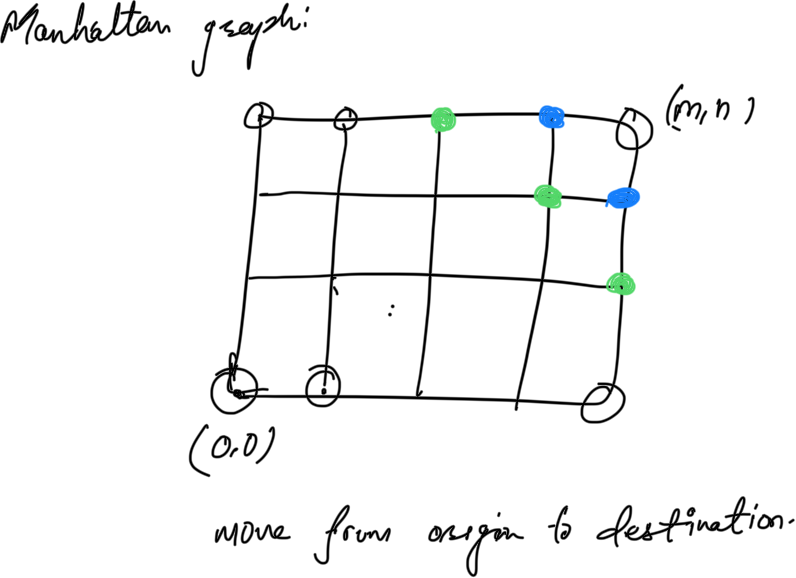 Manhattan graph:
(m,n)
:
(0,0)
move from origin to destination.